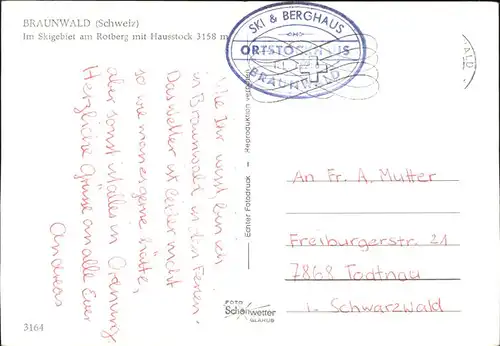 BRAUNWALD (Schweiz)
Im Skigebiet am Rotberg mit Hausstock 3158 m
SKI & BERGHAUS
ORTSTOCKHAUS
BRAUNWALD
Wie Ihr wisst bin ich
in Braunwald in den Ferien.
Das Wetter ist leider nicht
so wie man es gerne hätte,
aber sonst ist alles in Ordnung
Herzliche Grüsse an alle Euer
Andreas
Echter Fotodruck — Reproduktion verboten
An Fr. A. Mutter
Freiburgerstr. 21
7868 Todtnau
i. Schwarzwald
FOTO
Schönwetter
GLARUS
3164